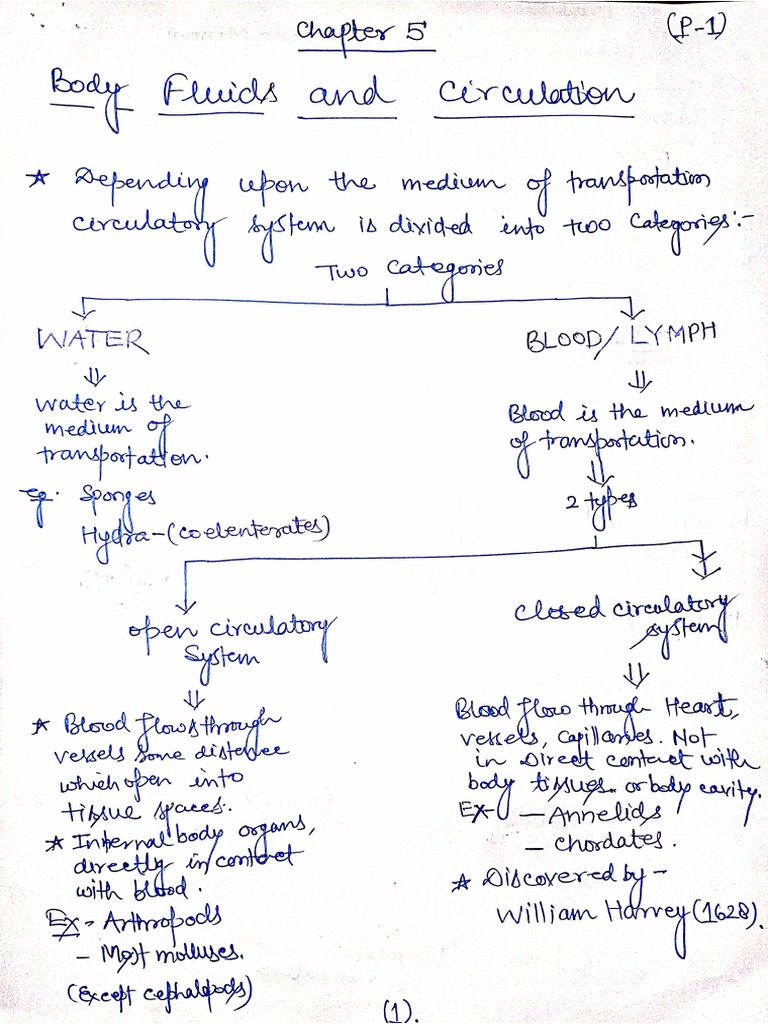 Chapter 5
(P-1)
Body Fluids and Circulation
* Depending upon the medium of transportation
circulatory system is divided into two Categories:-
Two Categories
WATER
BLOOD/LYMPH
⇓
⇓
Water is the
medium of
transportation.
Blood is the medium
of transportation.
⇓
Eg. Sponges
Hydra-(coelenterates)
2 types
open circulatory
System
closed circulatory
system
⇓
⇓
* Blood flows through
vessels some distence
which open into
tissue spaces.
* Internal body organs,
directly in contact
with blood.
Ex - Arthropods
- Most molluses.
(Except cephalopods)
Blood flow through Heart,
vessels, Capillaries. Not
in Direct contact with
body tissues or body cavity.
Ex- - Annelids
- chordates.
* Discovered by -
William Harvey (1628).
(1).